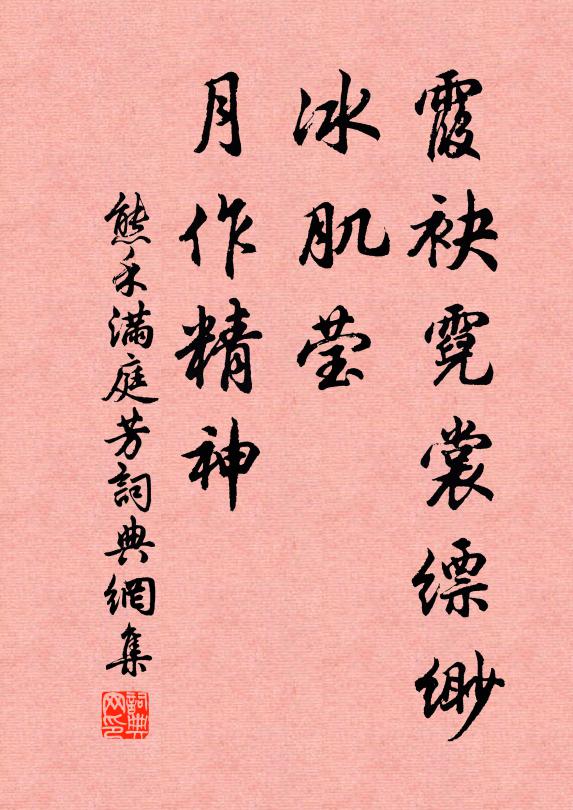 霞袂霓裳缥缈
冰肌莹
月作精神
熊禾满庭芳詞典網集
詞典网印